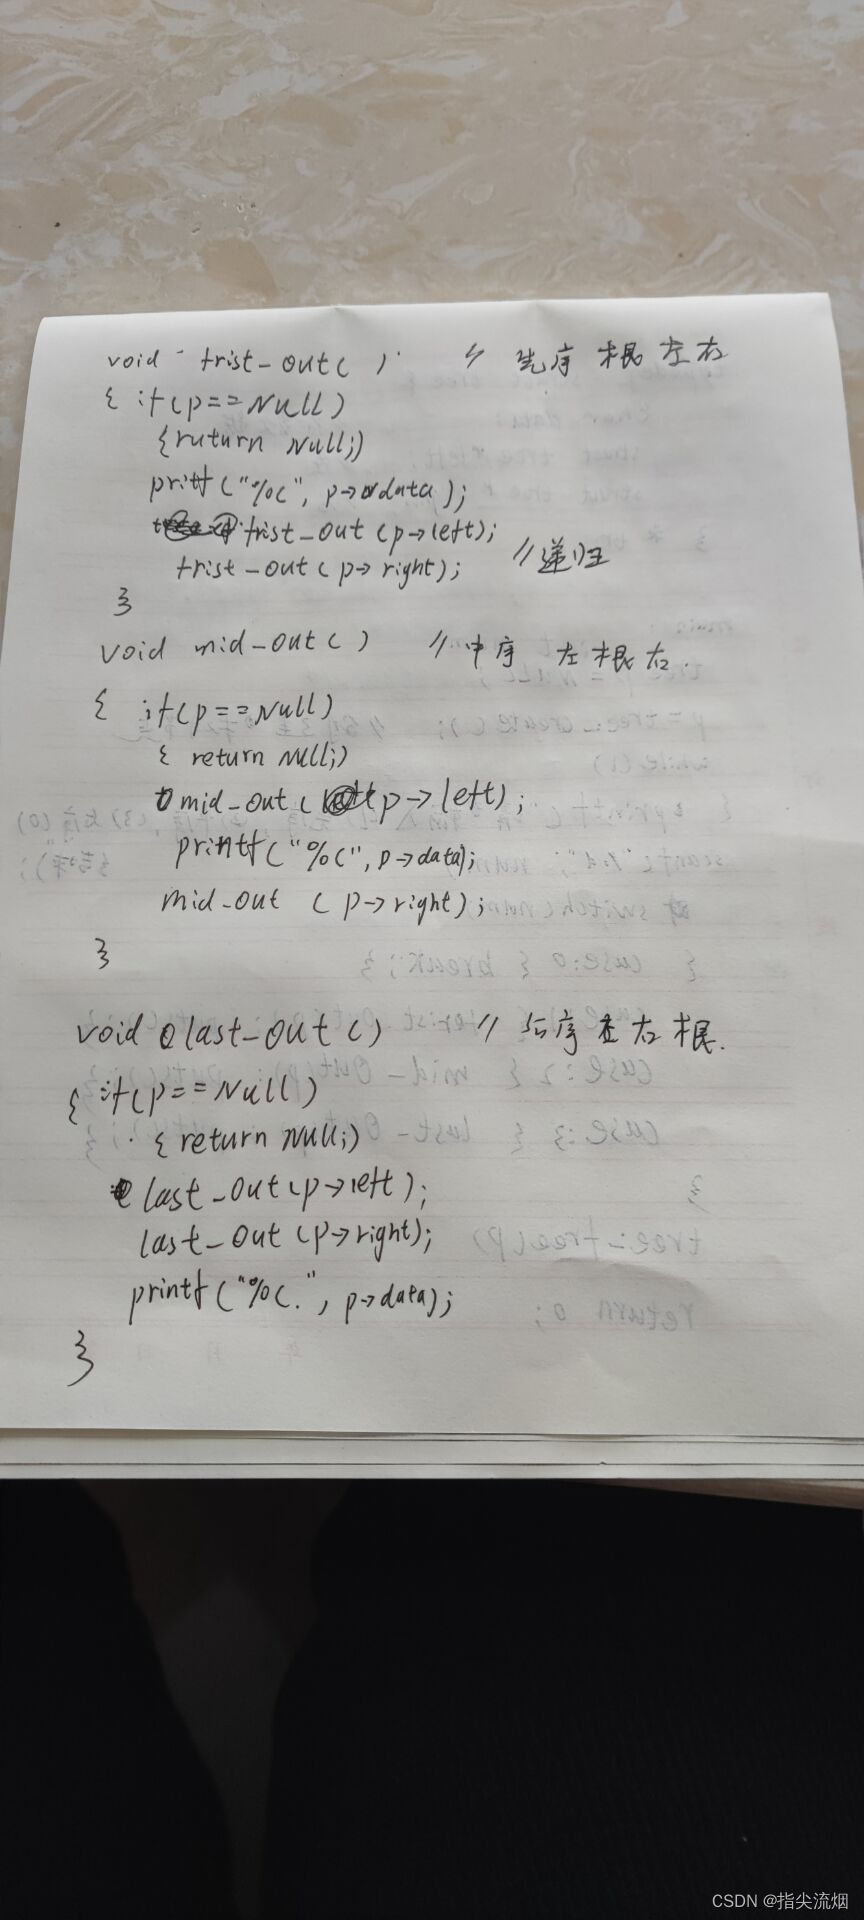 void frist-out( )  // 先序 根左右
{ if(p==Null)
{ruturn Null;}
pritf("%c", p->data);
frist-out(p->left);
frist-out(p->right);  //递归
}
void mid-out( )  //中序 左根右.
{ if(p==Null)
{ return Null;}
mid-out(p->left);
printf("%c", p->data);
mid-out (p->right);
}
void last-out( )  // 后序 左右根.
{ if(p==Null)
{ return Null;}
last-out(p->left);
last-out(p->right);
printf("%c.", p->data);
}
CSDN @指尖流烟